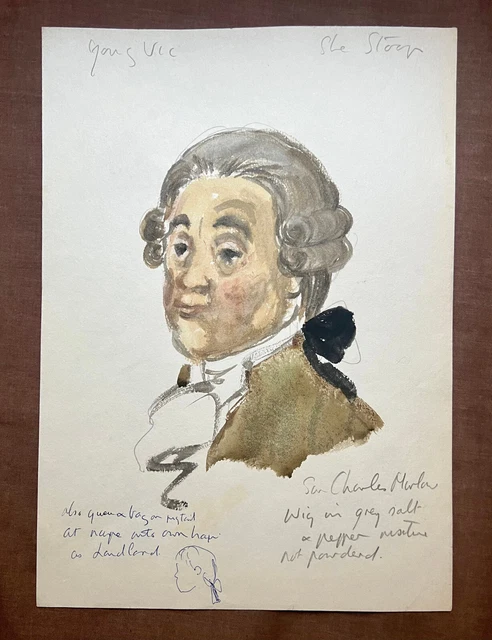 Young Vic
She Stoop
Sir Charles Marlow
Wig in grey salt
& pepper mixture
not powdered.
also queue & bag on pigtail
at nape into own hair
as Landlord